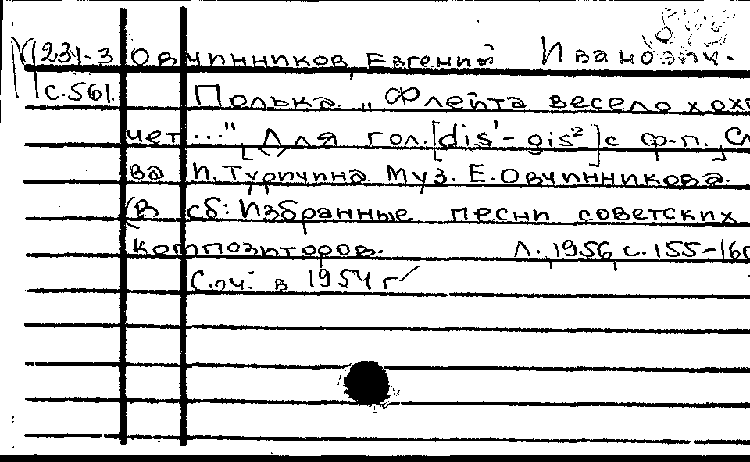 М231-3 Овчинников, Евгений Иванович.
с.561. Полька. „Флейта весело хохо
чет..." Для гол. [dis¹-gis²] с ф-п. Сл
ва П. Турчина Муз. Е. Овчинникова.
(В сб: Избранные песни советских
композиторов. Л., 1956, с. 155-160
Соч. в 1954 г